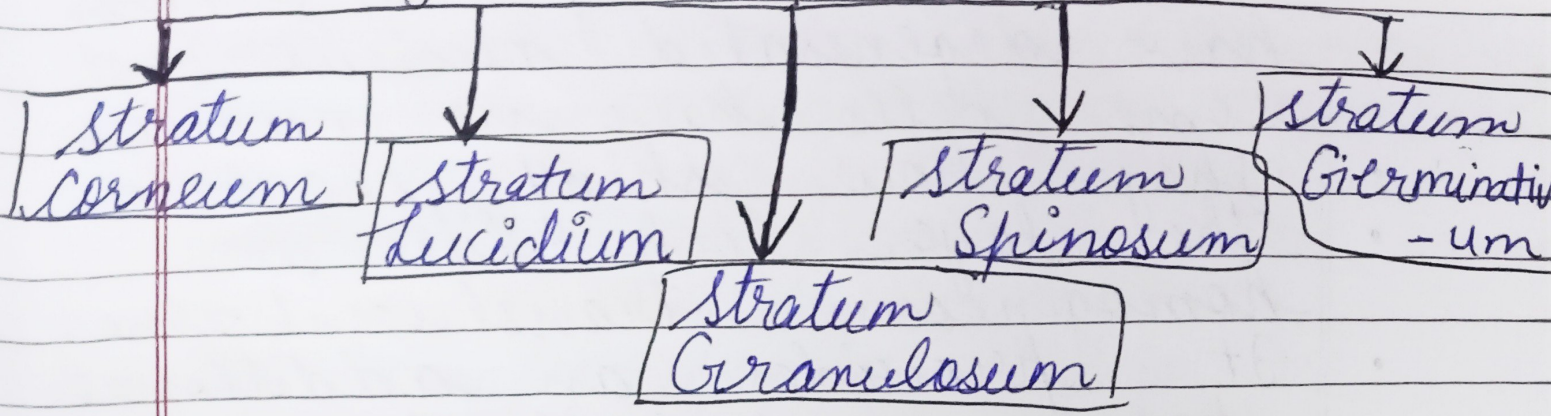 Stratum
Corneum
Stratum
Lucidium
Stratum
Granulosum
Stratum
Spinosum
Stratum
Germinativ
-um